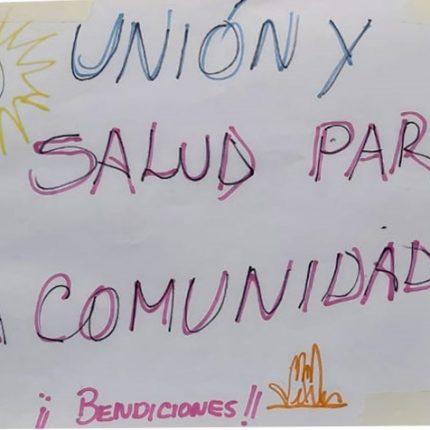 UNIÓN Y
SALUD PAR
A COMUNIDAD
¡¡ BENDICIONES!!